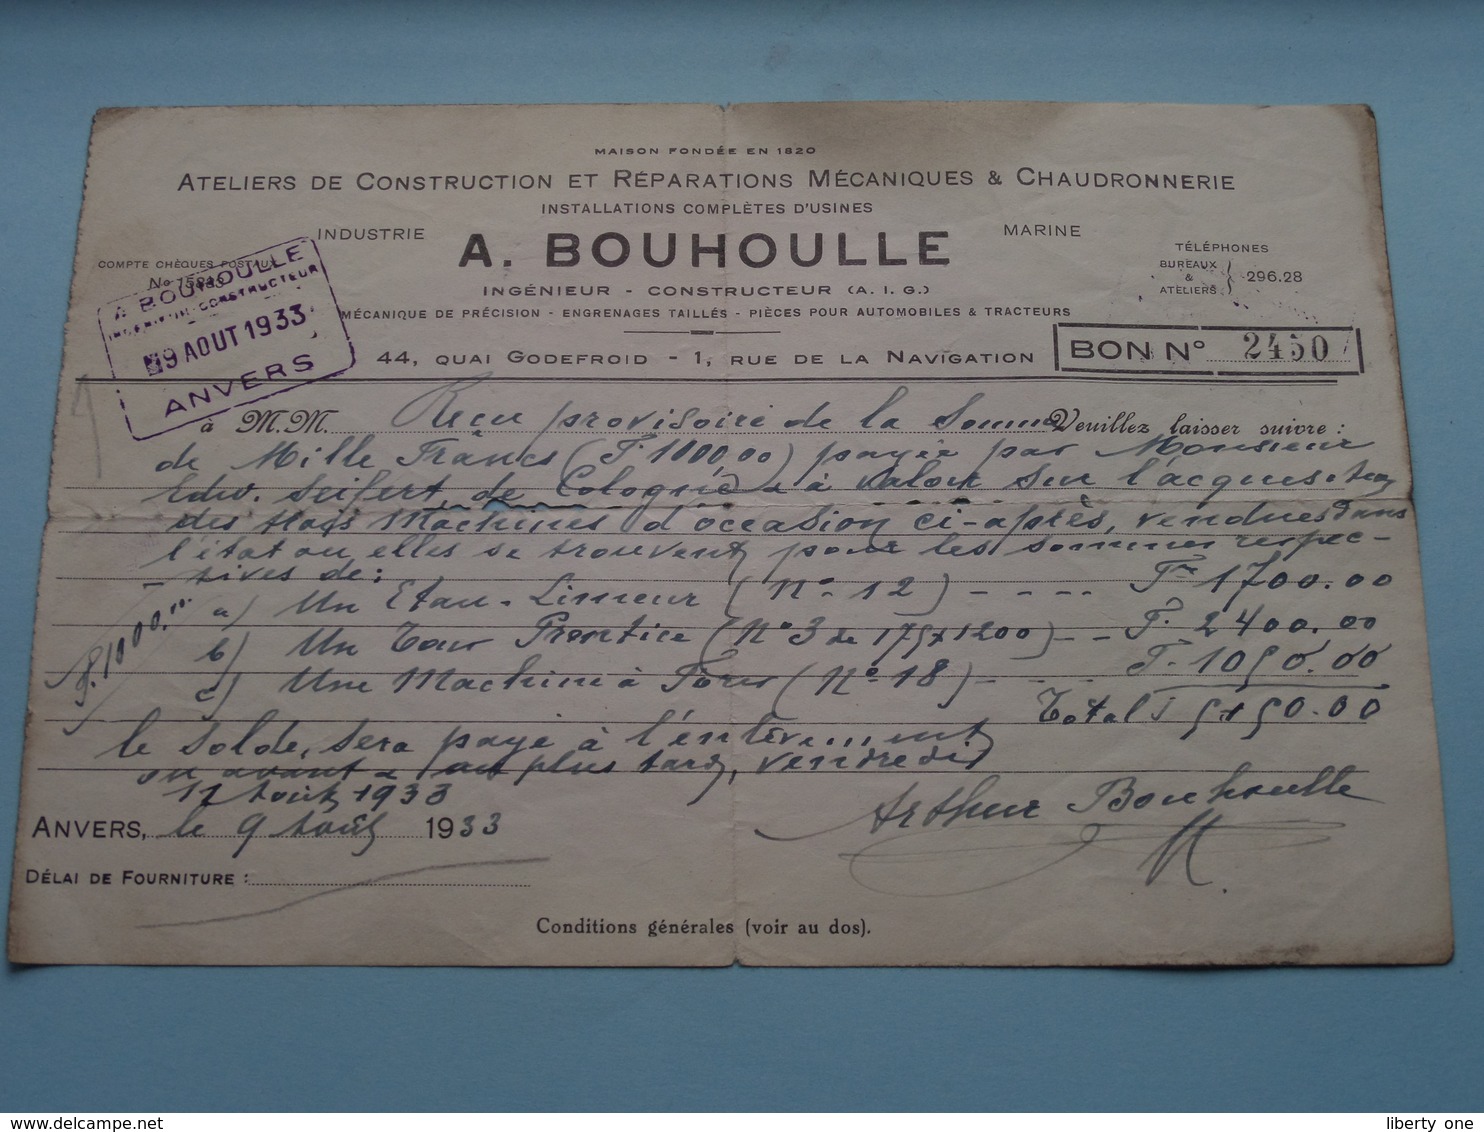 MAISON FONDÉE EN 1820
ATELIERS DE CONSTRUCTION ET RÉPARATIONS MÉCANIQUES & CHAUDRONNERIE
INSTALLATIONS COMPLÈTES D'USINES
INDUSTRIE A. BOUHOULLE MARINE
COMPTE CHÈQUES POSTAUX
No
TÉLÉPHONES
BUREAUX & ATELIERS : 296.28
INGÉNIEUR - CONSTRUCTEUR (A. I. G.)
MÉCANIQUE DE PRÉCISION - ENGRENAGES TAILLÉS - PIÈCES POUR AUTOMOBILES & TRACTEURS
44, QUAI GODEFROID - 1, RUE DE LA NAVIGATION
BON No 2450
A BOUHOULLE
INGÉNIEUR-CONSTRUCTEUR
9 AOUT 1933
ANVERS
à M.M. Reçu provisoire de la Somme Veuillez laisser suivre :
de Mille Francs (F. 1000,00) payée par Monsieur
Edw. Seifert de Cologne à valoir sur l'acquisition
des Machines d'occasion ci-après, vendues dans
l'état ou elles se trouvent pour les sommes respec-
tives de :
a) Un Etau-Limeur (No 12) - - - - Fr 1700.00
b) Un Tour Prentice (No 3 de 175x1200) - - F. 2400.00
c) Une Machine à Forer (No 18) - - - F. 1050.00
Total F 5150.00
F. 1000,00
le solde, sera payé à l'enlèvement
ou avant - au plus tard, vendredi
11 Août 1933
Arthur Bouhoulle
ANVERS, le 9 Août 1933
DÉLAI DE FOURNITURE :
Conditions générales (voir au dos).
delcampe.net
liberty one